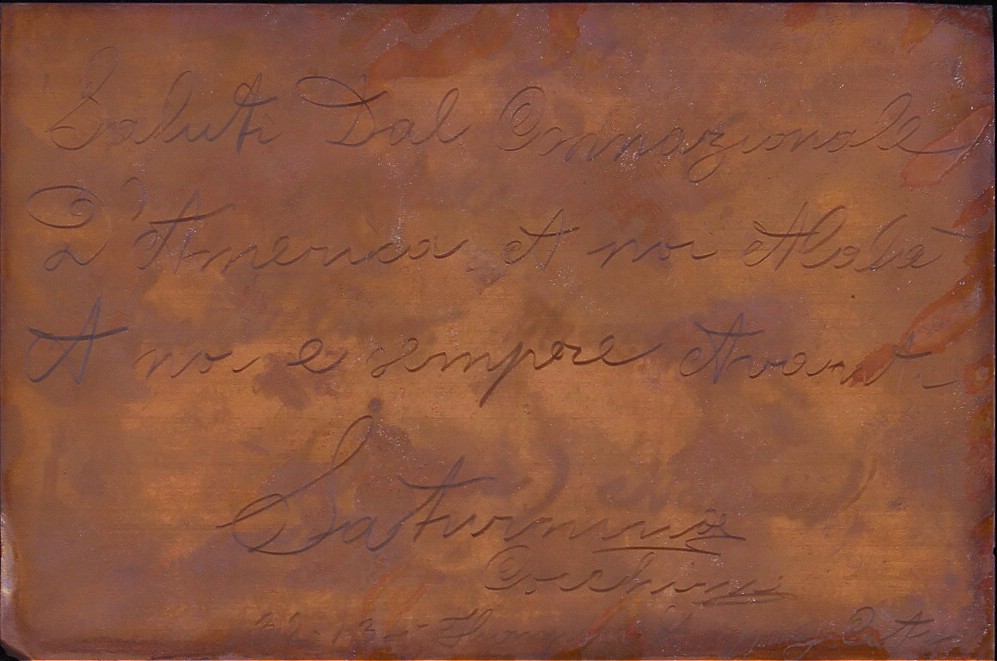 Saluti Dal Connazionale
D'America A noi Alalà
A noi e sempre Avanti
Saturnino